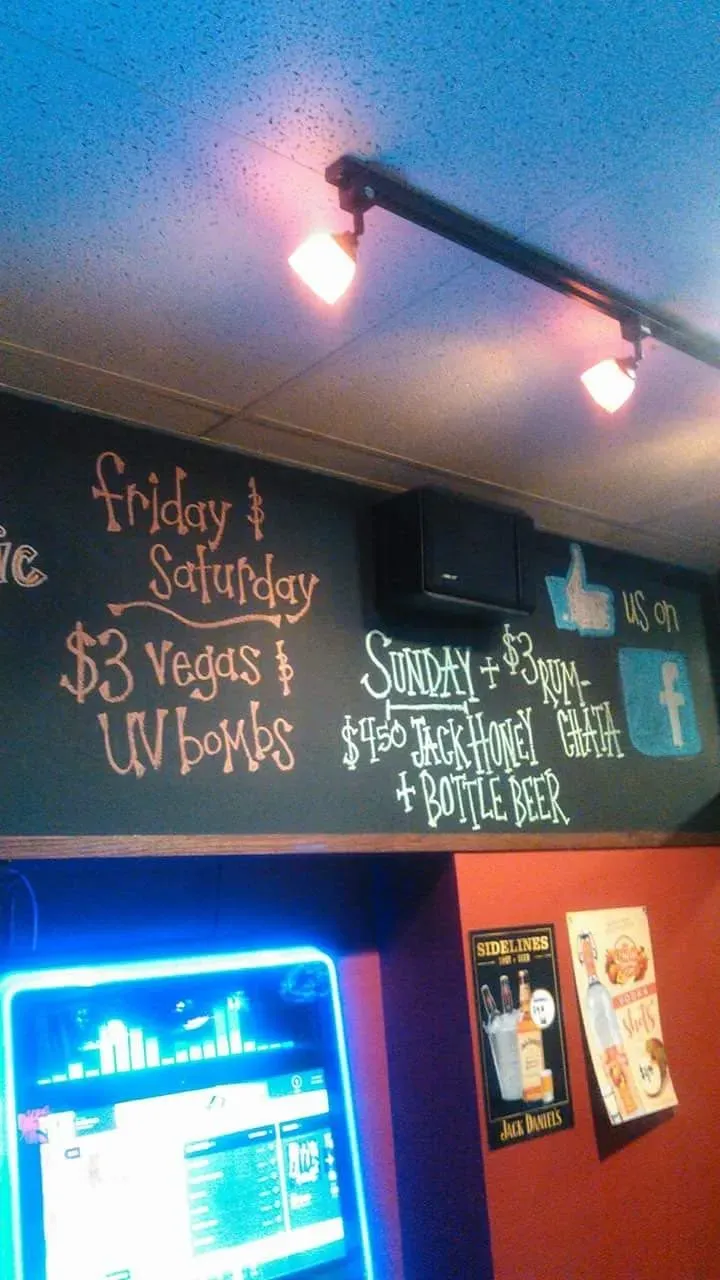 ic
friday &
Saturday
$3 Vegas &
UV bombs
SUNDAY + $3 RUM-
CHATA
$4.50 JACK HONEY
+ BOTTLE BEER
us on
f
SIDELINES
SHOT & BEER
JACK DANIELS
VODKA
shots